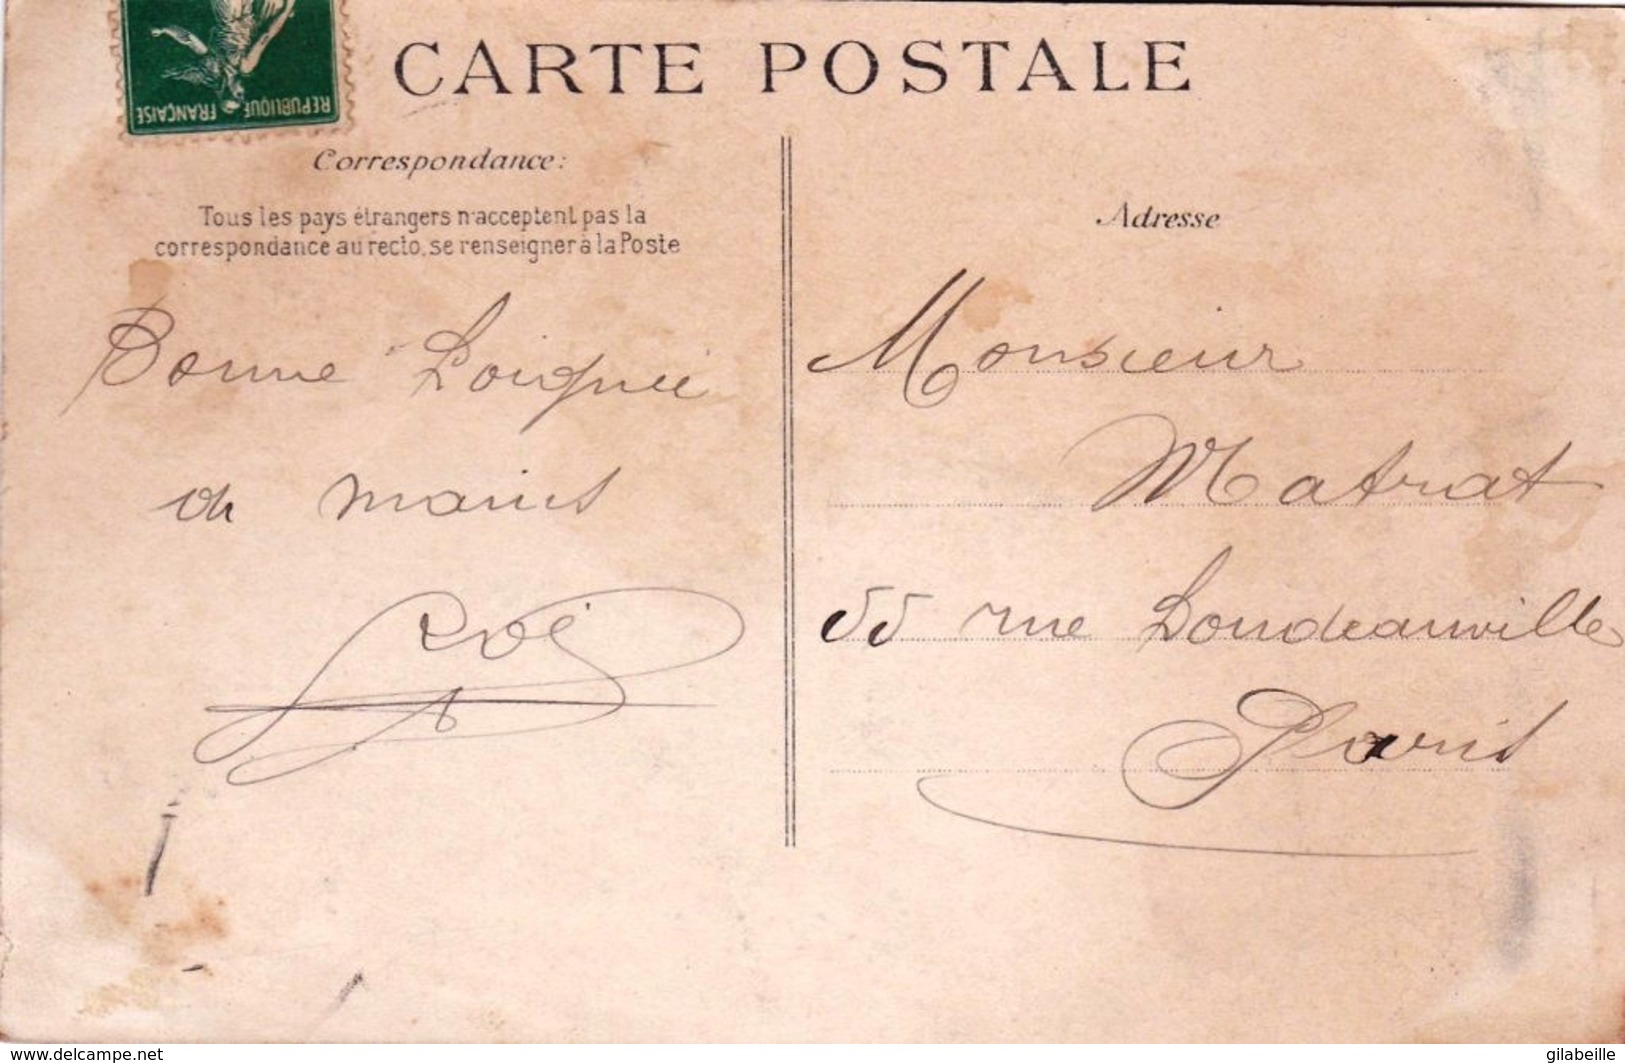 REPUBLIQUE FRANÇAISE
CARTE POSTALE
Correspondance:
Tous les pays étrangers n'acceptent pas la
correspondance au recto, se renseigner à la Poste
Bonne Poignée
de mains
Adresse
Monsieur
Matrat
55 rue Doudeauville
Paris
www.delcampe.net
gilabeille